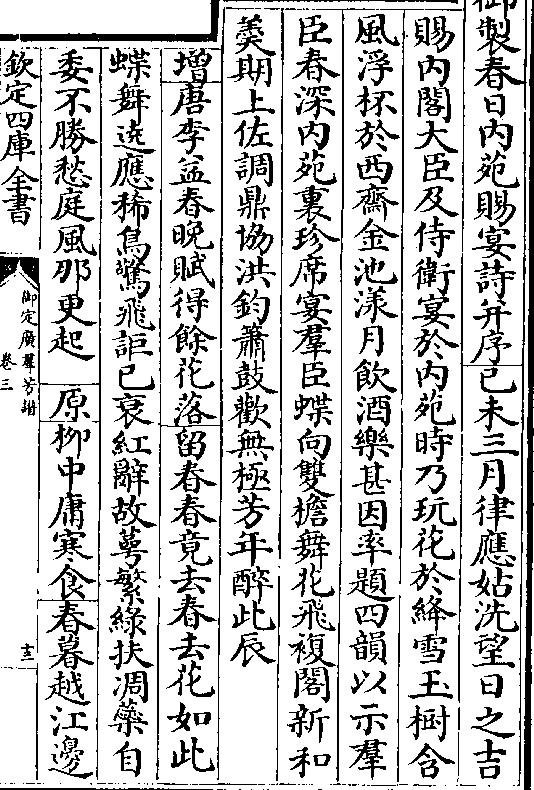 御製春日内苑賜宴詩并序己未三月律應姑洗望日之吉
賜内閣大臣及侍衛宴於内苑時乃玩花於絳雪玉樹含
風浮杯於西齋金池漾月飲酒樂甚因率題四韻以示羣
臣春深内苑裏珍席宴羣臣蝶向雙檐舞花飛複閣新和
羮期上佐調鼎協洪鈞簫鼓歡無極芳年醉此辰
增唐李益春晚賦得餘花落留春春竟去春去花如此
蝶舞遶應稀鳥驚飛詎已衰紅辭故萼繁綠扶凋蘂自
委不勝愁庭風那更起 原柳中庸寒食春暮越江邊
欽定四庫全書
御定廣羣芳譜
卷三
十三